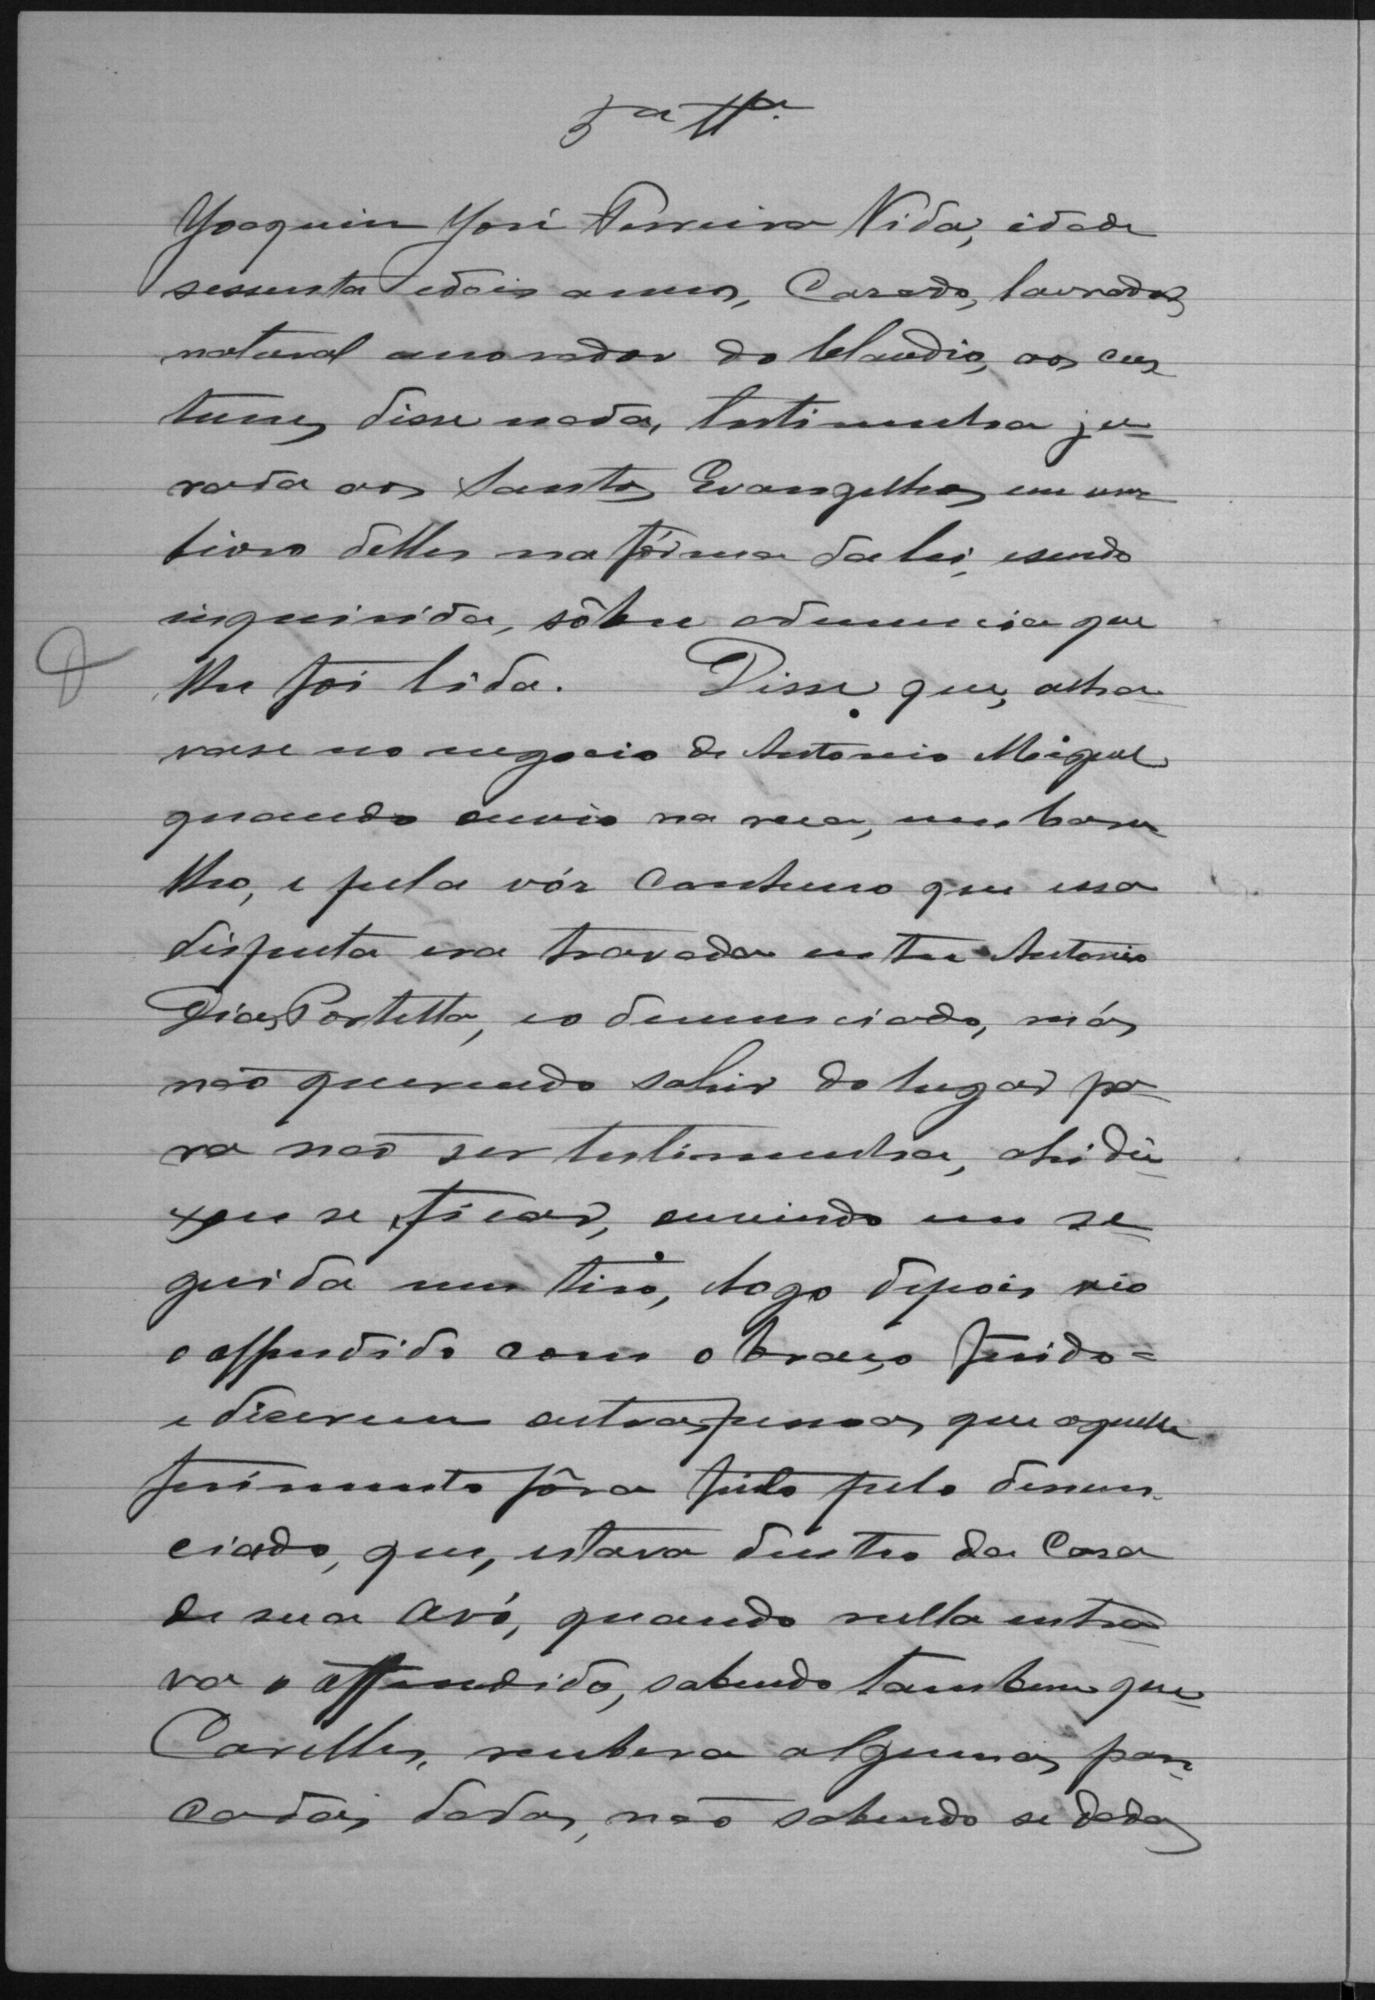 5ª Ttª
Joaquim José Ferreira Vida, idade
sessenta edois annos, Casado, lavrador,
natural emorador do Claudio, aos cus
tumes disse nada, testimunha ju-
rada aos Santos Evangelhos em um
livro delles na fórma da lei, esendo
inquirida, sôbre adenuncia que
lhe foi lida. Disse que, acha-
vase no negocio de Antonio Miguel
quando ouvio na rua, um baru-
lho, e pela vóz conheceo que essa
disputa era travada entre Antonio
Dias Portella, eo denunciado, más
não querendo sahir do lugar pa-
ra não ser testimunha, ahi dei-
xou se ficar, ouvindo em se-
guida um tiro, logo depois vio
o offendido com o braço ferido=
e diserem outras pessoas que aquelle
ferimento fôra feito pelo denun-
ciado, que, estava dentro da Casa
de sua avó, quando nella entra-
va o offendido, sabendo tambem que
Carilhos, recebera algumas pan-
cadas dadas, não sabendo se dadas